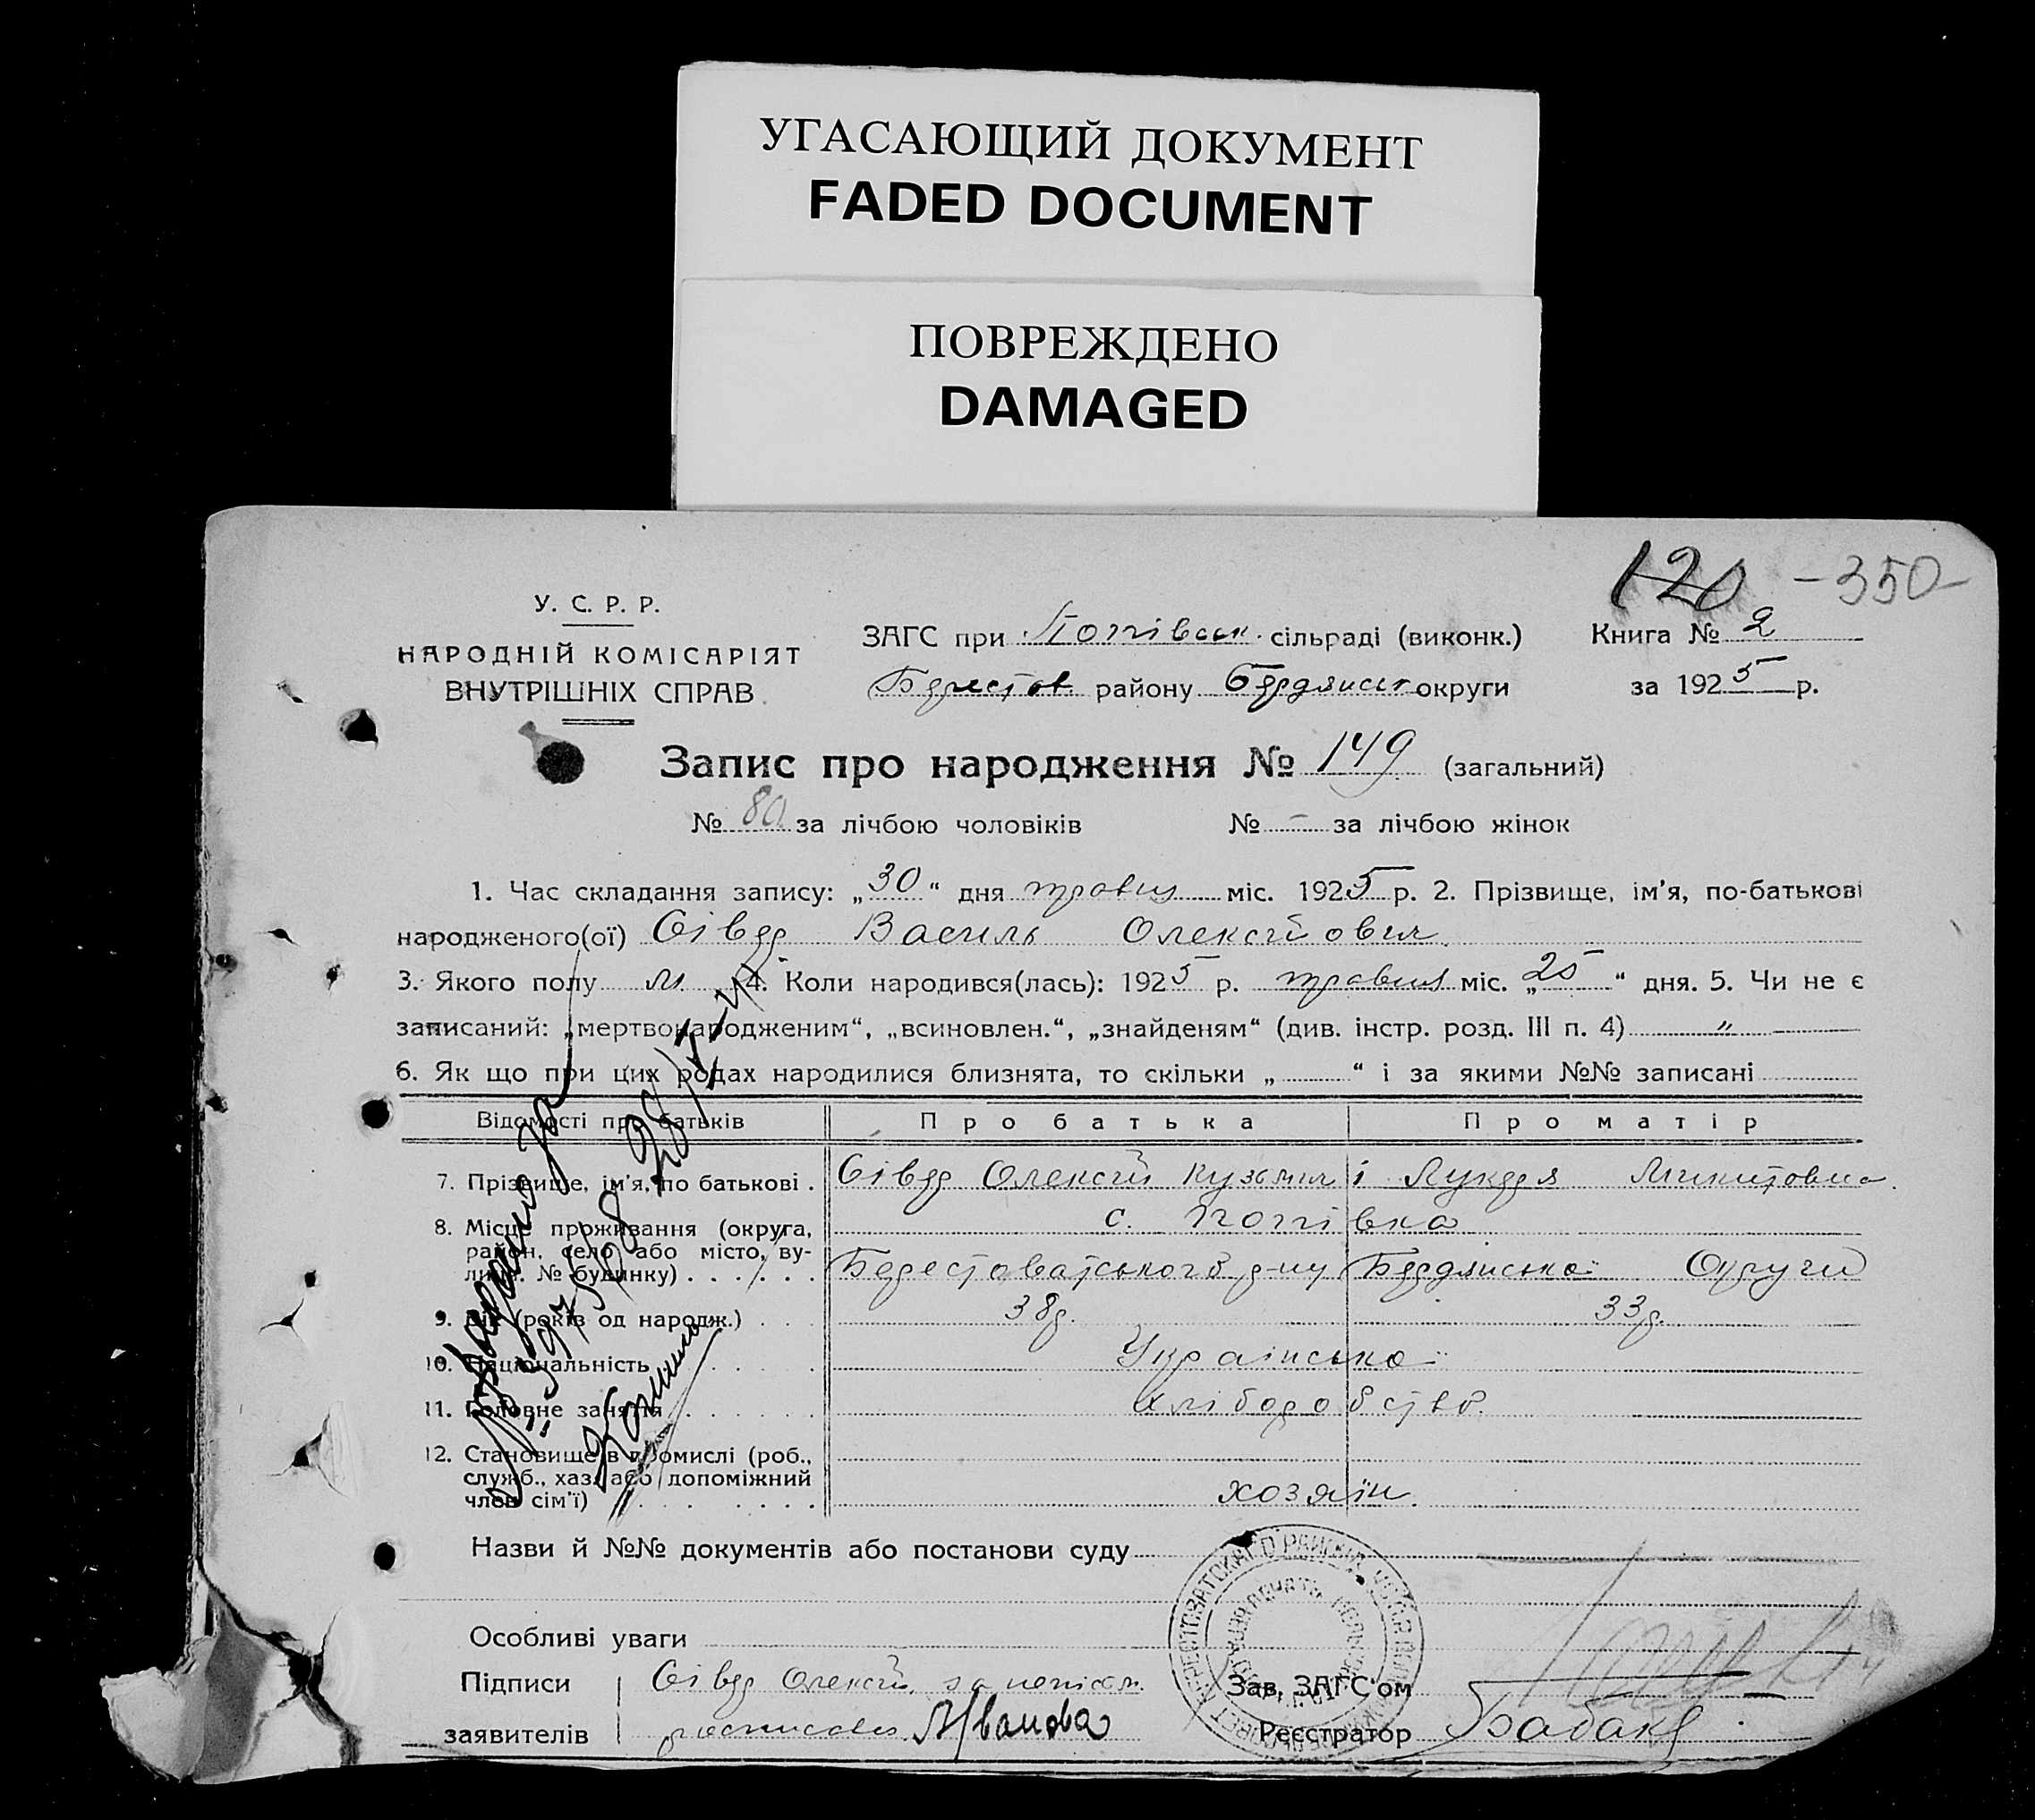 УГАСАЮЩИЙ ДОКУМЕНТ
FADED DOCUMENT
ПОВРЕЖДЕНО
DAMAGED
120 -350-
У. С. Р. Р.
НАРОДНІЙ КОМІСАРІЯТ
ВНУТРІШНІХ СПРАВ
ЗАГС при Попівськ. сільраді (виконк.) Книга № 2
Берестов. району Бердянськ округи за 1925 р.
Запис про народження № 149 (загальний)
№ 80 за лічбою чоловіків № - за лічбою жінок
1. Час складання запису: „30“ дня травня міс. 1925 р. 2. Прізвище, ім'я, по-батькові
народженого(ої) Сівер Василь Олексійович
3. Якого полу м. 4. Коли народився(лась): 1925 р. травня міс. „25“ дня. 5. Чи не є
записаний: „мертвонародженим“, „всиновлен.“, „знайденям“ (див. інстр. розд. III п. 4) "
6. Як що при цих родах народилися близнята, то скільки „ “ і за якими №№ записані
Відомості про батьків Про батька Про матір
7. Прізвище, ім'я, по батькові . Сівер Олексій Кузьмич і Лукеря Микитовна
8. Місце проживання (округа, с. Попівка
район, село або місто, ву-
лиця. № будинку) . . . . . . Берестоватського р-ну Бердянської Округи
9. Вік (років од народж.) . . . 38р. 33р.
10. Національність . . . . . . Українська
11. Головне заняття . . . . . . хліборобство.
12. Становище в промислі (роб.,
служб., хаз. або допоміжний
член сім'ї) . . . . . . хозяїн.
Назви й №№ документів або постанови суду
Особливі уваги
Підписи Сівер Олексій, за неписьм. Зав. ЗАГС'ом
заявителів росписався АИванова Реєстратор Бабак